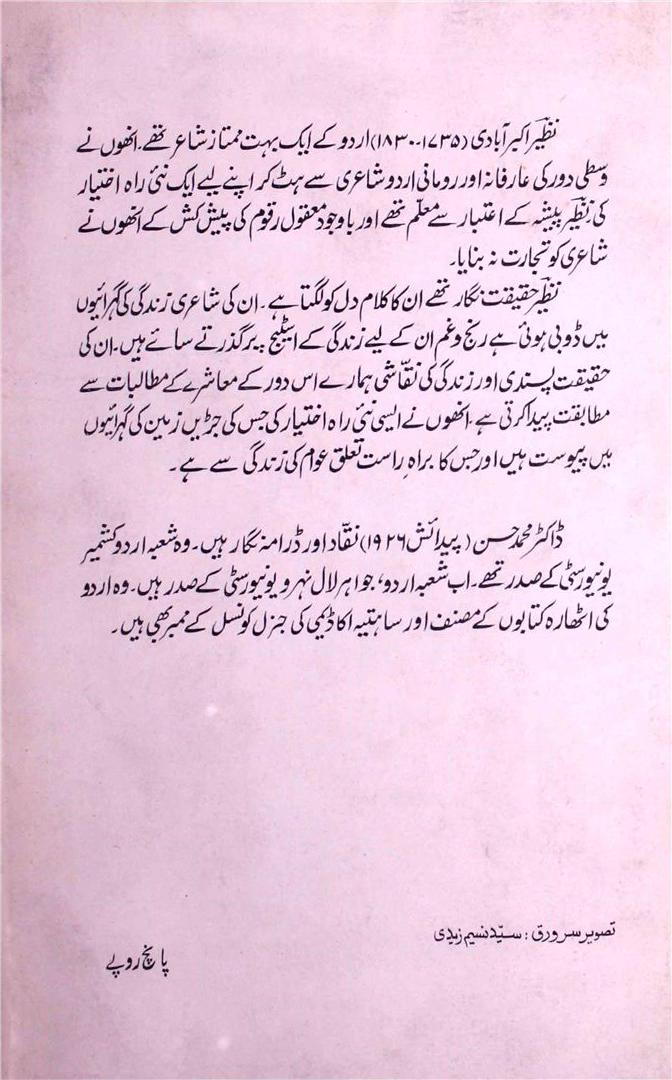 نظیؔر اکبر آبادی (۱۷۳۵۔۱۸۳۰) اردو کے ایک بہت ممتاز شاعر تھے۔ انھوں نے
وسطی دور کی عارفانہ اور رومانی اردو شاعری سے ہٹ کر اپنے لیے ایک نئی راہ اختیار
کی۔ نظیؔر پیشہ کے اعتبار سے معلّم تھے اور باوجود معقول رقوم کی پیش کش کے انھوں نے
شاعری کو تجارت نہ بنایا۔
نظیؔر حقیقت نگار تھے ان کا کلام دل کو لگتا ہے۔ ان کی شاعری زندگی کی گہرائیوں
میں ڈوبی ہوئی ہے رنج و غم ان کے لیے زندگی کے اسٹیج پر گذرتے سائے ہیں۔ ان کی
حقیقت پسندی اور زندگی کی نقّاشی ہمارے اس دور کے معاشرے کے مطالبات سے
مطابقت پیدا کرتی ہے۔ انھوں نے ایسی نئی راہ اختیار کی جس کی جڑیں زمین کی گہرائیوں
میں پیوست ہیں اور جس کا براہِ راست تعلق عوام کی زندگی سے ہے۔
ڈاکٹر محمد حسن (پیدائش ۱۹۲۶) نقّاد اور ڈرامہ نگار ہیں۔ وہ شعبہ اردو کشمیر
یونیورسٹی کے صدر تھے۔ اب شعبہ اردو، جواہر لال نہرو یونیورسٹی کے صدر ہیں۔ وہ اردو
کی اٹھارہ کتابوں کے مصنف اور ساہتیہ اکاڈیمی کی جنرل کونسل کے ممبر بھی ہیں۔
تصویر سرورق : سیّد نسیم زیدی
پانچ روپے